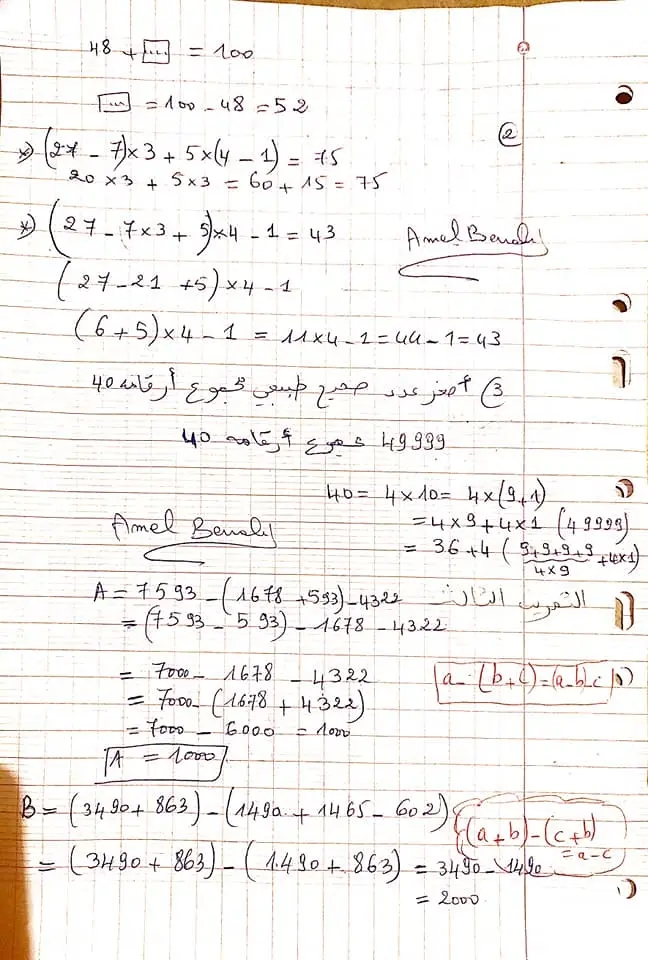 48 + [...] = 100
[...] = 100 - 48 = 52
②
*) (27 - 7)×3 + 5×(4 - 1) = 75
20 × 3 + 5×3 = 60 + 15 = 75
*) (27 - 7×3 + 5)×4 - 1 = 43
Amel Benalj
(27 - 21 + 5)×4 - 1
(6 + 5)×4 - 1 = 11×4 - 1 = 44 - 1 = 43
3) أصغر عدد صحيح طبيعي مجموع أرقامه 40
49999 مجموع أرقامه 40
40 = 4×10 = 4×(9+1)
= 4×9 + 4×1 (49999)
= 36 + 4 (9+9+9+9 + 4×1)
4×9
Amel Benalj
التمرين الثالث
A = 7593 - (1678 + 593) - 4322
= (7593 - 593) - 1678 - 4322
= 7000 - 1678 - 4322
a - (b+c) = (a-b)-c
= 7000 - (1678 + 4322)
= 7000 - 6000 = 1000
A = 1000
B = (3490 + 863) - (1490 + 1465 - 602)
(a+b) - (c+b)
= a - c
= (3490 + 863) - (1490 + 863) = 3490 - 1490
= 2000